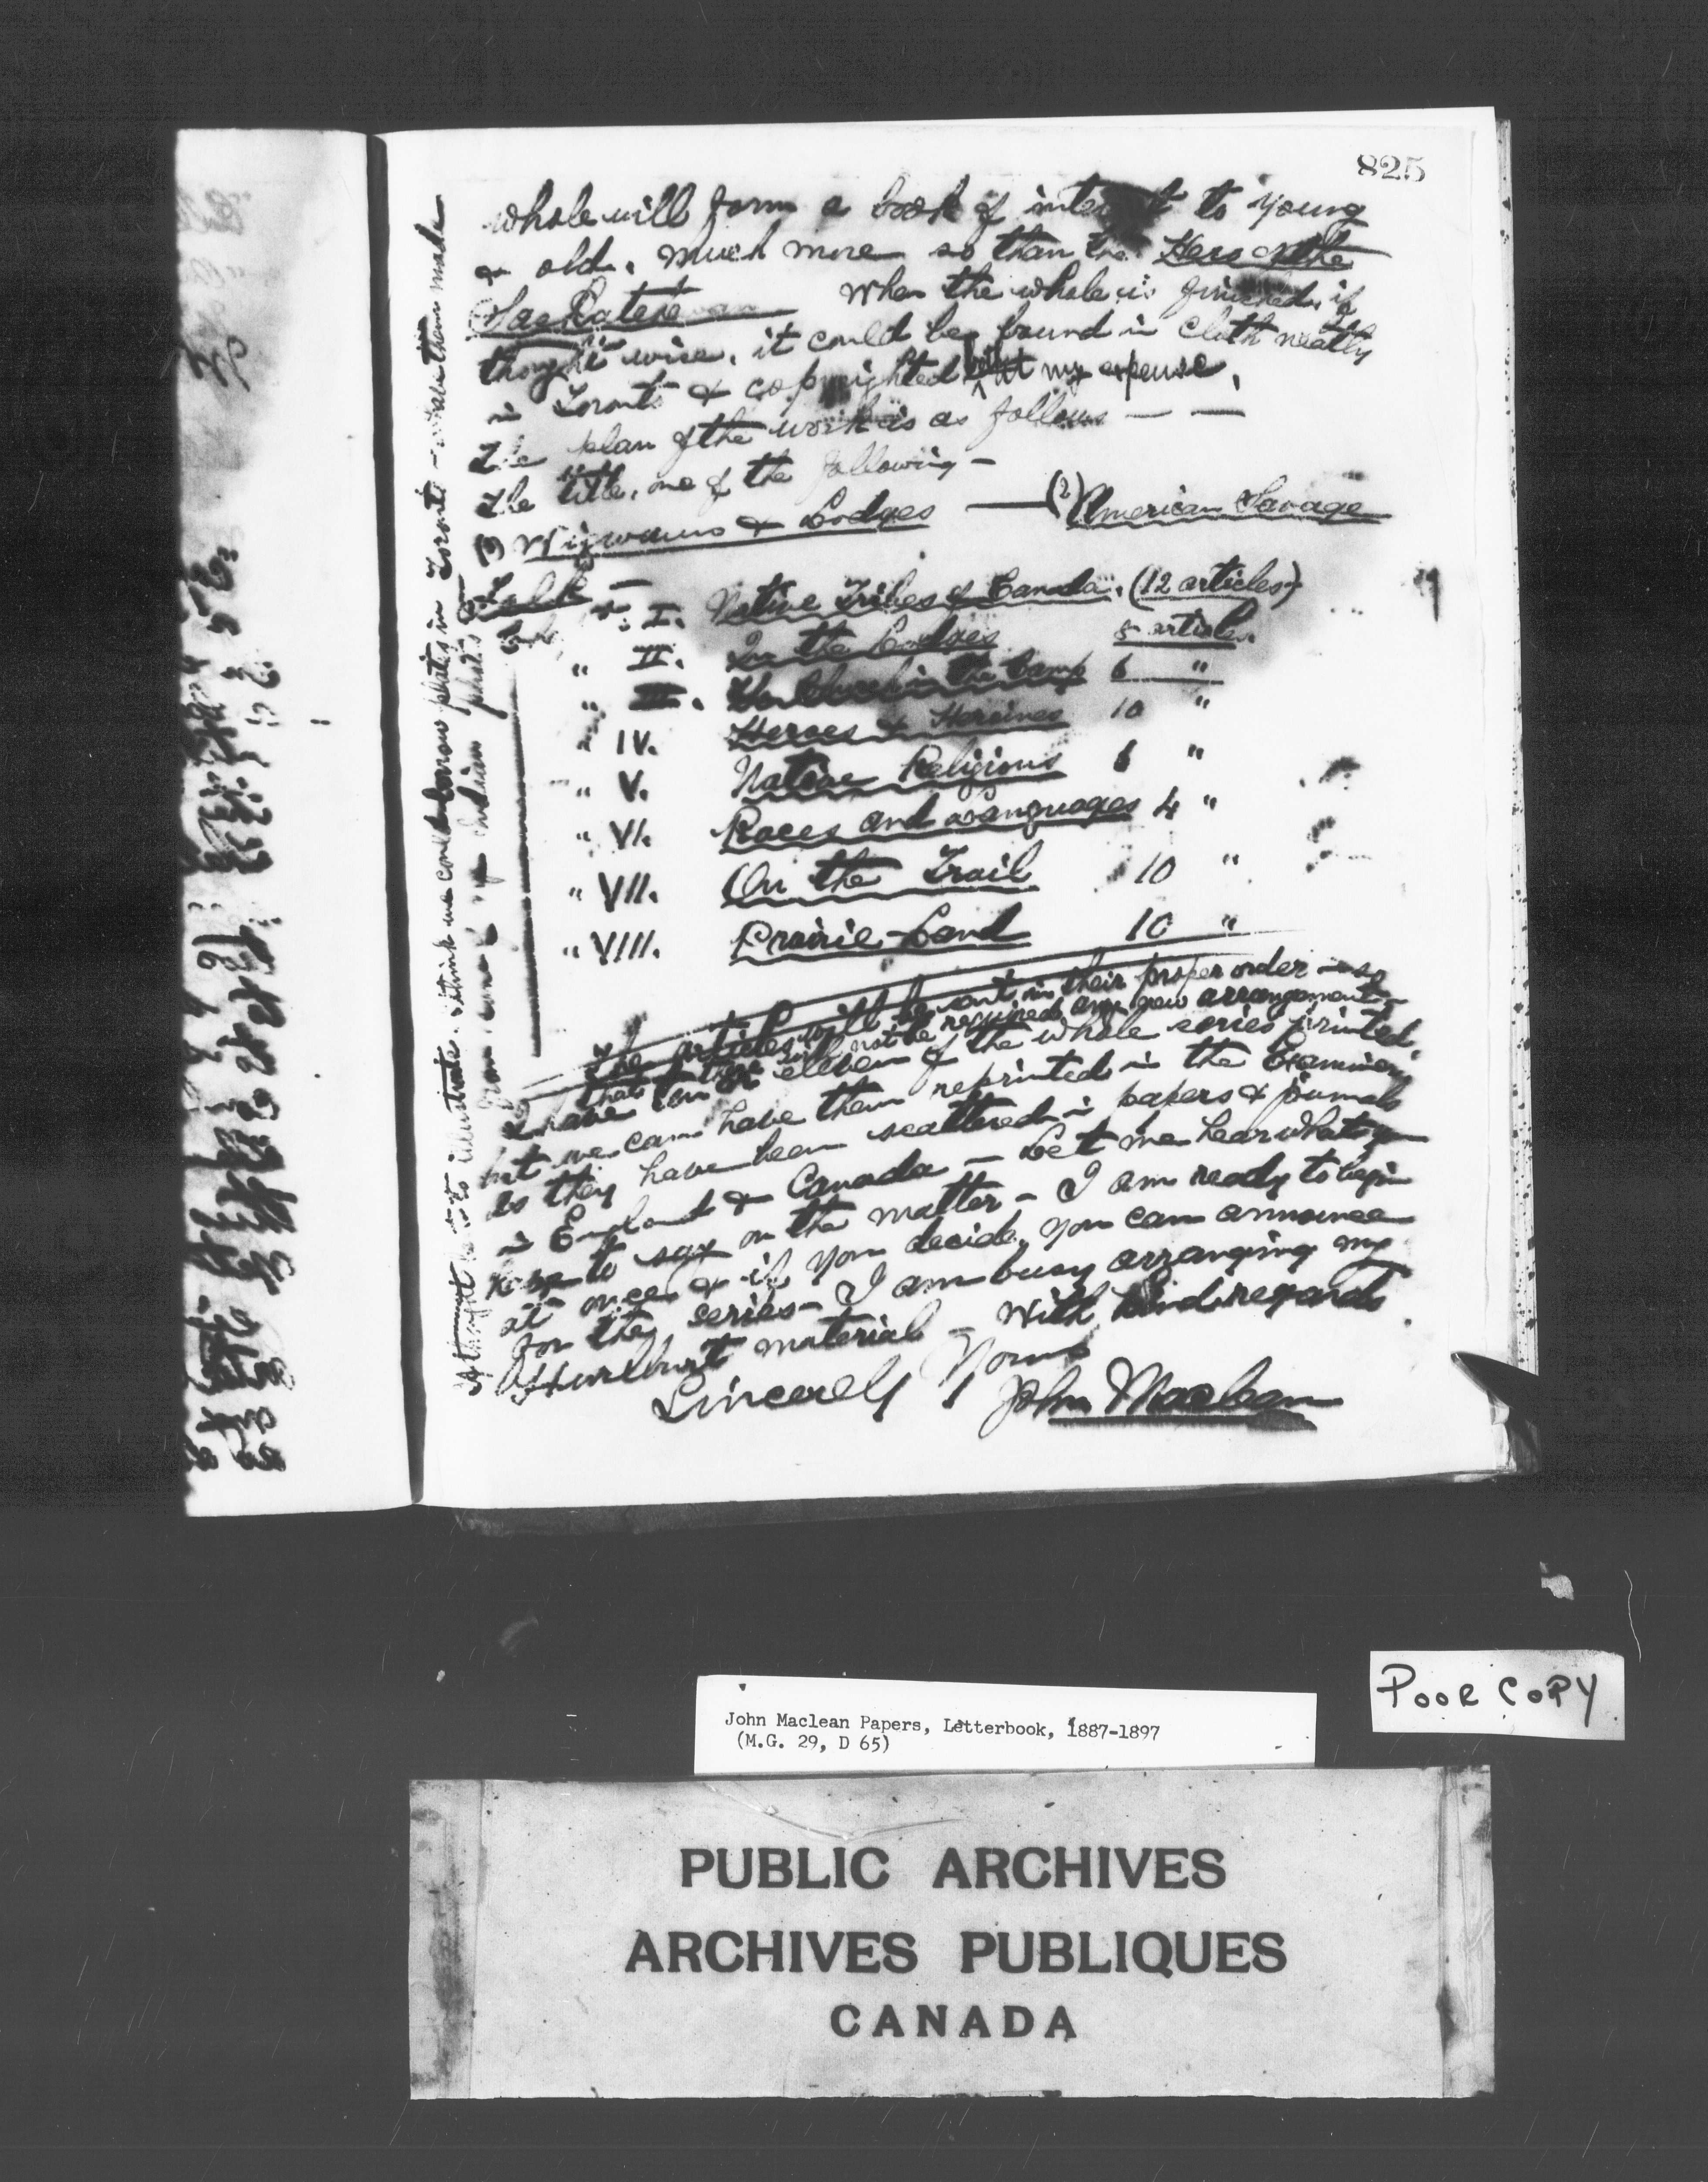 825
whole will form a book of interest to young
& old, much more so than the Hero of the
Saskatchewan When the whole is finished, if
thought wise, it could be bound in cloth neatly
in Toronto & copyrighted at my expense.
The plan of the work is as follows — —
The title, one of the following —
(1) Wigwams & Lodges — (2) American Savage
I. Native Tribes of Canada. (12 articles)
" II. In the Lodges 8 articles.
" III. The Church in the Camp 6 "
" IV. Heroes & Heroines 10 "
" V. Native Religions 6 "
" VI. Races and Languages 4 "
" VII. On the Trail 10 "
" VIII. Prairie Land 10 "
The articles will be sent in their proper order — so
that there will not be required any new arrangement.
I have ten or eleven of the whole series printed,
but we can have them reprinted in the Examiner
as they have been scattered in papers & journals
in England & Canada — Let me hear what you
have to say on the matter — I am ready to begin
at once & if you decide, you can announce
for the series — I am busy arranging my
Hurlburt material — With kind regards
Sincerely Yours
John Maclean
illustrate. I think we could borrow plates in Toronto — have them made
POOR COPY
John Maclean Papers, Letterbook, 1887-1897
(M.G. 29, D 65)
PUBLIC ARCHIVES
ARCHIVES PUBLIQUES
CANADA